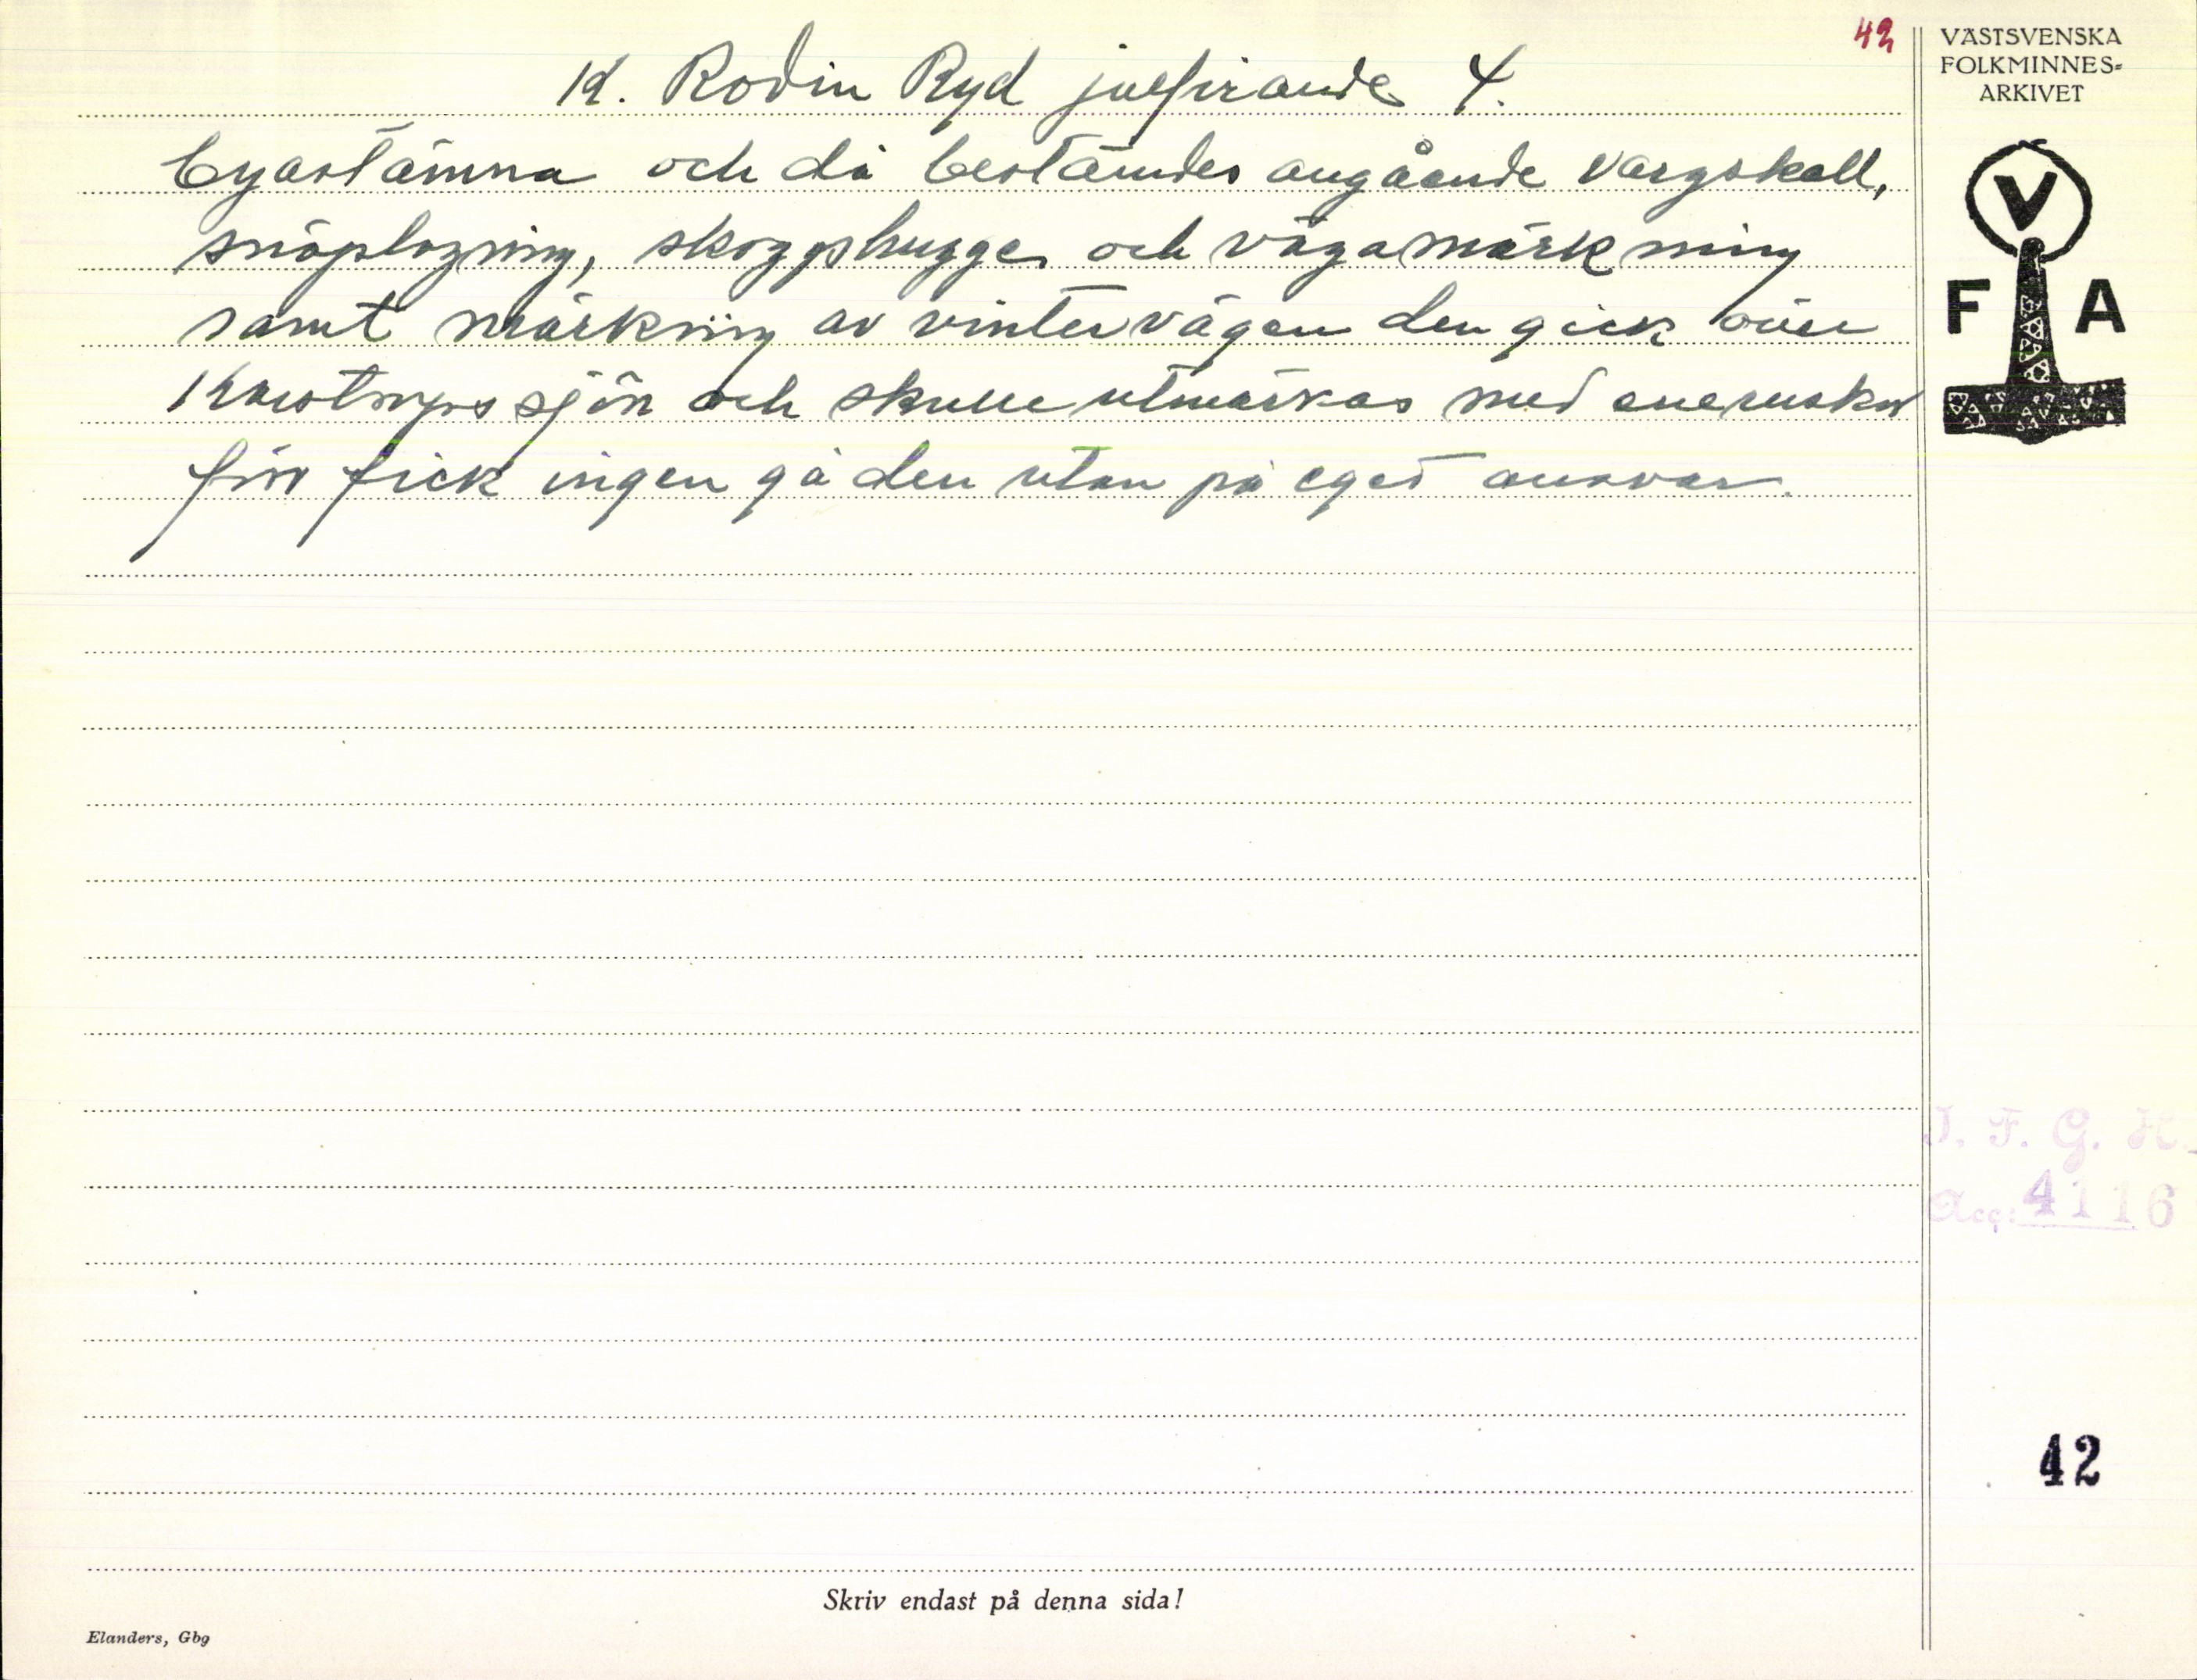 42
K. Rodin Ryd julfirande 4.
byastämna och då bestämdes angående vargskall,
snöplogning, skoggshugge och vägamärkning
samt märkning av vintervägen den gick över
sjön och skulle utmärkas med eneruskor
förr fick ingen gå den utan på eget ansvar.
VÄSTSVENSKA
FOLKMINNES=
ARKIVET
V
F A
I. F. G. H.
Acc: 4116
42
Skriv endast på denna sida!
Elanders, Gbg